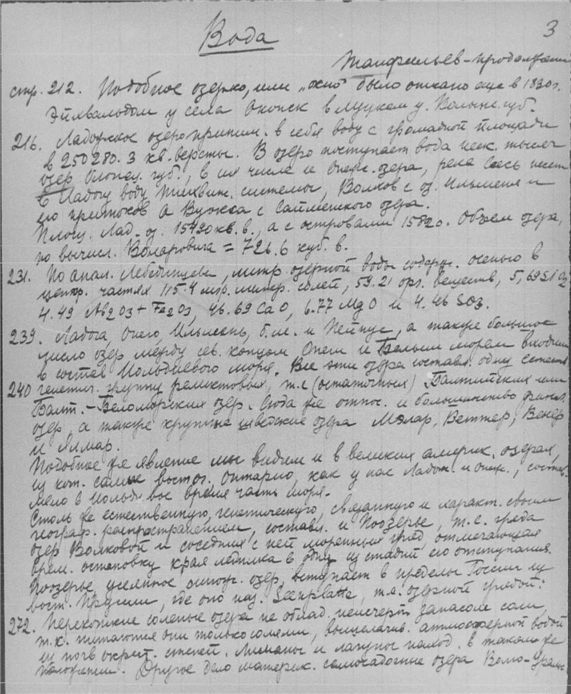 Вода
3
Танфильев - продолжение
стр. 212. Подобное озерко, или "окно" было описано еще в 1830 г.
Эйхвальдом у села Оконск в Луцком у. Волынс. губ.
216. Ладожское озеро приним. в себя воду с громадной площади
в 250280.3 кв. версты. В озеро поступает вода неск. тысяч
озер Олонец. губ., в их числе и Онежс. озера, река Свирь несет
в Ладогу воду Тихвинс. системы, Волхов с оз. Ильменя и
его притоков а Вуокса с Сайменского озера.
Площ. Лад. оз. 15490 кв. в., а с островами 15820. Объем озера,
по вычисл. = 726.6 куб. в.
231. По анал. Лебединцева, литр озерной воды содерж. осенью в
центр. частях 115.4 м/гр. минер. солей, 59.21 орг. веществ, 5,69 SiO2
4.49 Al2O3 + Fe2O3, 46.69 CaO, 6.77 MgO и 4.46 SO3.
239. Ладога, Онего, Ильмень, б.м. и Пейпус, а также большое
число озер между сев. концом Онеги и Белым морем входили
в состав Иольдиевого моря. Все эти озера составл. одну естеств.
240 генетич. группу реликтовых, т.е. (остаточных) Балтийских или
Балт.-Беломорских озер. Сюда же относ. и большинство финл.
озер, а также крупные шведские озера Мэлар, Веттер, Венер
и Элмар.
Подобное же явление мы видим и в великих америк. озерах,
из кот. самое восточ. Онтарио, как у нас Ладож. и Онеж., состав-
ляло в иольдиевое время часть моря.
Столь же естественную, генетическую, связанную и характ. своим
географ. распространением, составл. и Поозерье, т.е. гряда
озер Валковой и соседних с ней моренных гряд, отмечающая
врем. остановку края ледника в одну из стадий его отступания.
Поозерье, усеянное озер, вступает в пределы России из
вост. Пруссии, где оно наз. Seenplatte, т.е. озерной грядой.
272. Перехожие соленые озера не облад. неисчерп. запасом соли,
т.к. питаются они только солями, выщелачив. атмосферной водой
из почв окрест. степей. Лиманы и лагуны наход. в таком же
положении. Другое дело материк. самосадочные озера Волго-Уральс.